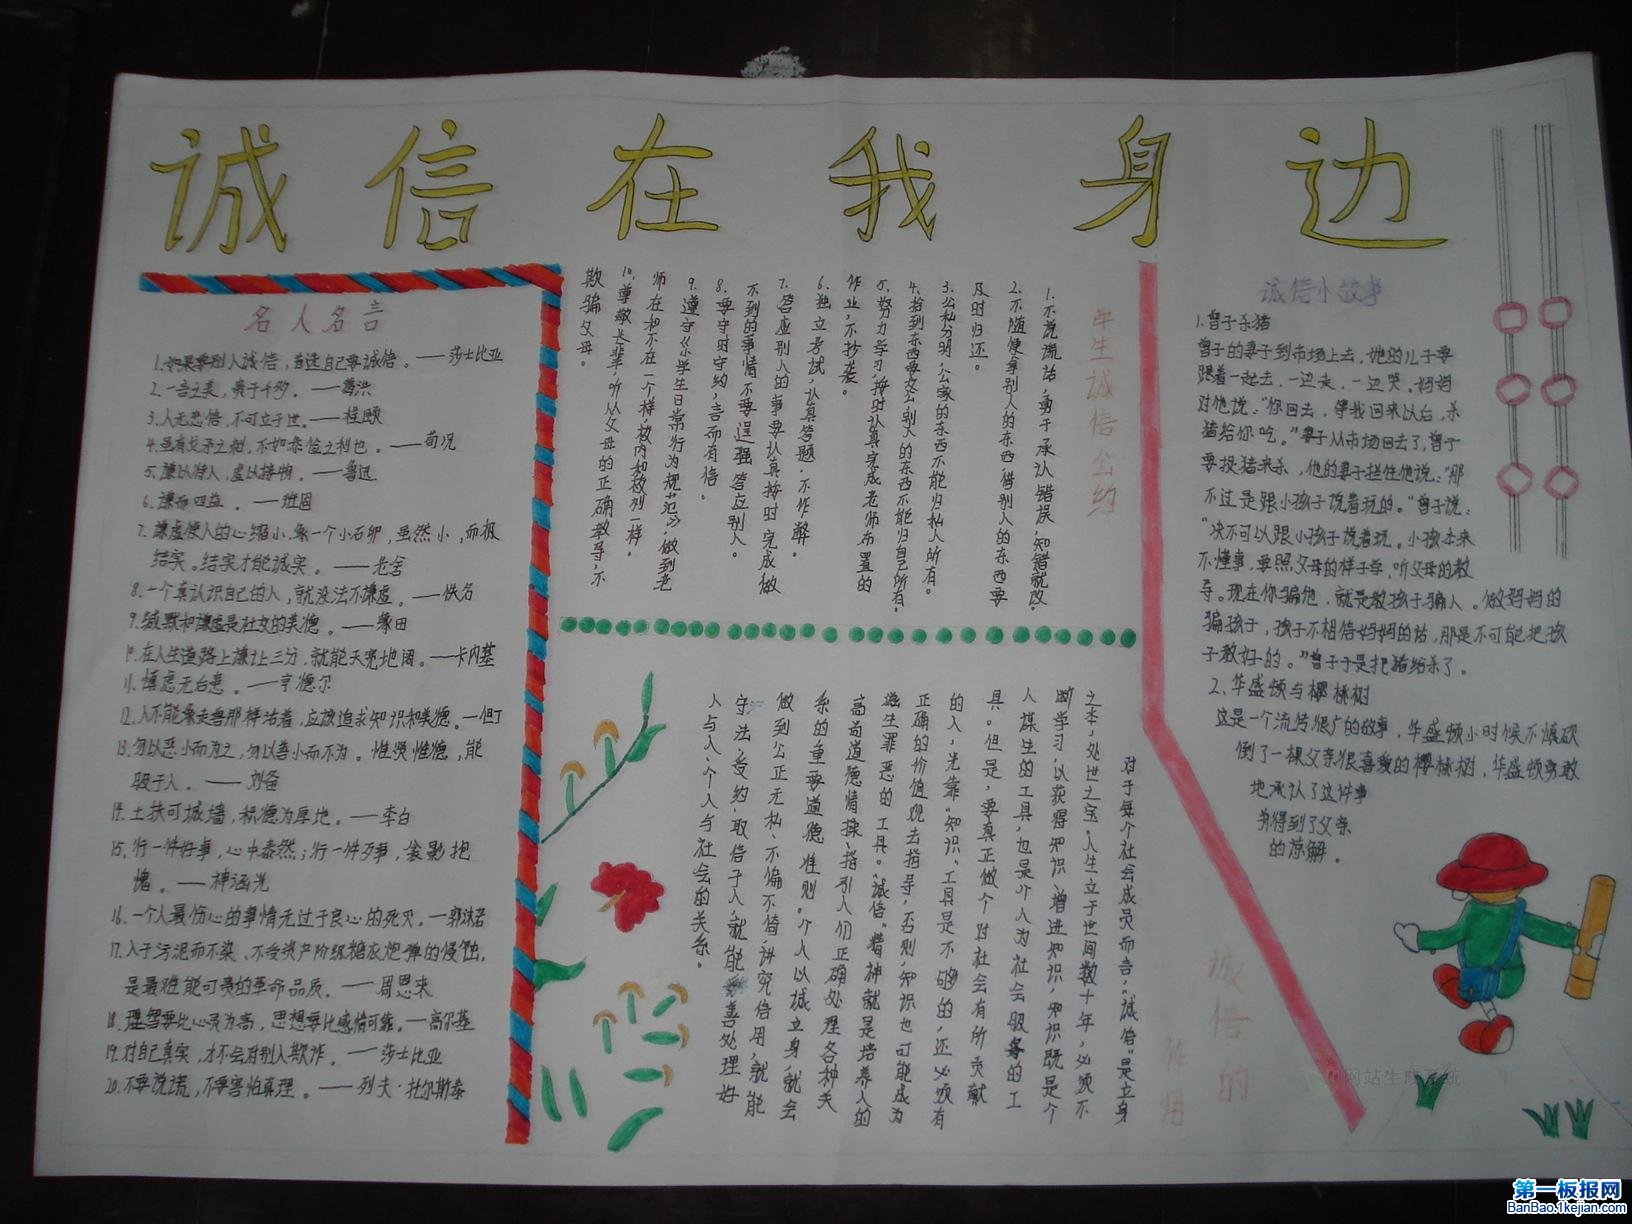 诚信在我身边
名人名言
1.如果要别人诚信，首选自己要诚信。——莎士比亚
2.一言之美，贵于千金。——葛洪
3.人无忠信，不可立于世。——程颐
4.虽有戈矛之刺，不如恭俭之利也。——荀况
5.谦以待人，虚以接物。——鲁迅
6.谦而四益。——班固
7.谦虚使人的心缩小，象一个小石卵，虽然小，而极
结实。结实才能诚实。——老舍
8.一个真认识自己的人，就没法不谦虚。——佚名
9.缄默和谦虚是社交的美德。——蒙田
10.在人生道路上谦让三分，就能天宽地阔。——卡内基
11.慎虑无怠意。——亨德尔
12.人不能象走兽那样活着，应该追求知识和美德。—但丁
13.勿以恶小而为之，勿以善小而不为。惟贤惟德，能
服于人。——刘备
14.土扶可城墙，积德为厚地。——李白
15.行一件好事，心中泰然；行一件歹事，衾影抱
愧。——神涵光
16.一个人最伤心的事情无过于良心的死灭。—郭沫若
17.入于污泥而不染、不受资产阶级糖衣炮弹的侵蚀，
是最难能可贵的革命品质。——周恩来
18.理智要比心灵为高，思想要比感情可靠。—高尔基
19.对自己真实，才不会对别人欺诈。——莎士比亚
20.不要说谎，不要害怕真理。——列夫·托尔斯泰
生诚信公约
1.不说谎话，勇于承认错误，知错就改。
2.不随便拿别人的东西，借别人的东西要
及时归还。
3.公私分明，公家的东西不能归私人所有。
4.拾到东西要交公，别人的东西不能归自己所有。
5.努力学习，按时认真完成老师布置的
作业，不抄袭。
6.独立考试，认真答题，不作弊。
7.答应别人的事要认真按时完成，做
不到的事情不要逞强答应别人。
8.要守时守约，言而有信。
9.遵守《小学生日常行为规范》，做到老
师在和不在一个样，校内和校外一样。
10.尊敬长辈，听从父母的正确教导，不
欺骗父母。
诚信的
作用
对于每个社会成员而言，“诚信”是立身
之本，处世之宝。人生立于世间数十年，必须不
断学习，以获得知识、增进知识，知识既是个
人谋生的工具，也是个人为社会服务的工
具。但是，要真正做个对社会有所贡献
的人，光靠“知识”工具是不够的，还必须有
正确的价值观去指导，否则，知识也可能成为
滋生罪恶的工具。“诚信”精神就是培养人的
高尚道德情操、指引人们正确处理各种关
系的重要道德准则。个人以诚立身，就会
做到公正无私、不偏不倚，讲究信用，就能
守法、受约、取信于人，就能善处理好
人与人、个人与社会的关系。
诚信小故事
1.曾子杀猪
曾子的妻子到市场上去，她的儿子要
跟着一起去，一边走，一边哭。妈妈
对他说：“你回去，等我回来以后，杀
猪给你吃。”妻子从市场回去了，曾子
要捉猪来杀，他的妻子拦住他说：“那
不过是跟小孩子说着玩的。”曾子说：
“决不可以跟小孩子说着玩。小孩本来
不懂事，要照父母的样子学，听父母的教
导。现在你骗他，就是教孩子骗人。做妈妈的
骗孩子，孩子不相信妈妈的话，那是不可能把孩
子教好的。”曾子于是把猪给杀了。
2.华盛顿与樱桃树
这是一个流传很广的故事，华盛顿小时候不慎砍
倒了一棵父亲很喜爱的樱桃树，华盛顿勇敢
地承认了这件事
并得到了父亲
的谅解。
@网站生成系统
第一板报网
BanBao.1kejian.com